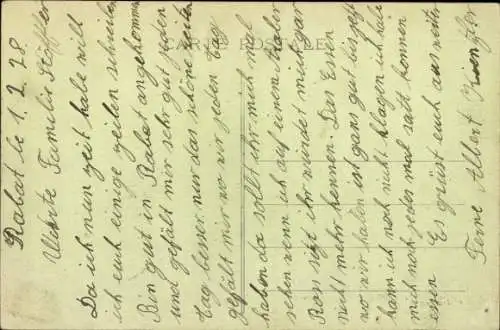 CARTE POSTALE
Rabat le 1. 2. 28
Wehrte Familie Stöffler
Da ich nun zeit habe will
ich euch einige zeilen schreiben
Bin gut in Rabat angekommen
und gefält mir sehr gut jeden
Tag besser nur das schöne
gefält mir wo wir jeden Tag
haben da sollt ihr mich mal
sehen wenn ich auf einem Araber
Ross sitz ihr würdet mich gar
nicht mehr kennen. Das Essen
wo wir haben ist gans gut bis jetzt
kann ich noch nicht klagen ich habe
mich noch jedes mal satt können
essen Es grüst euch aus weiter
Ferne Albert